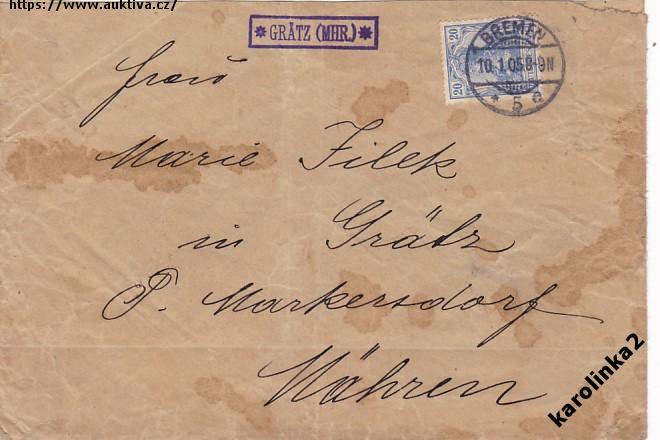 https://www.auktiva.cz/
* GRÄTZ (MHR.) *
20 20
BREMEN
10.1.05 8-9N
* 5 a
Frau
Marie Filek
in Grätz
P. Markersdorf
Mähren
karolinka2